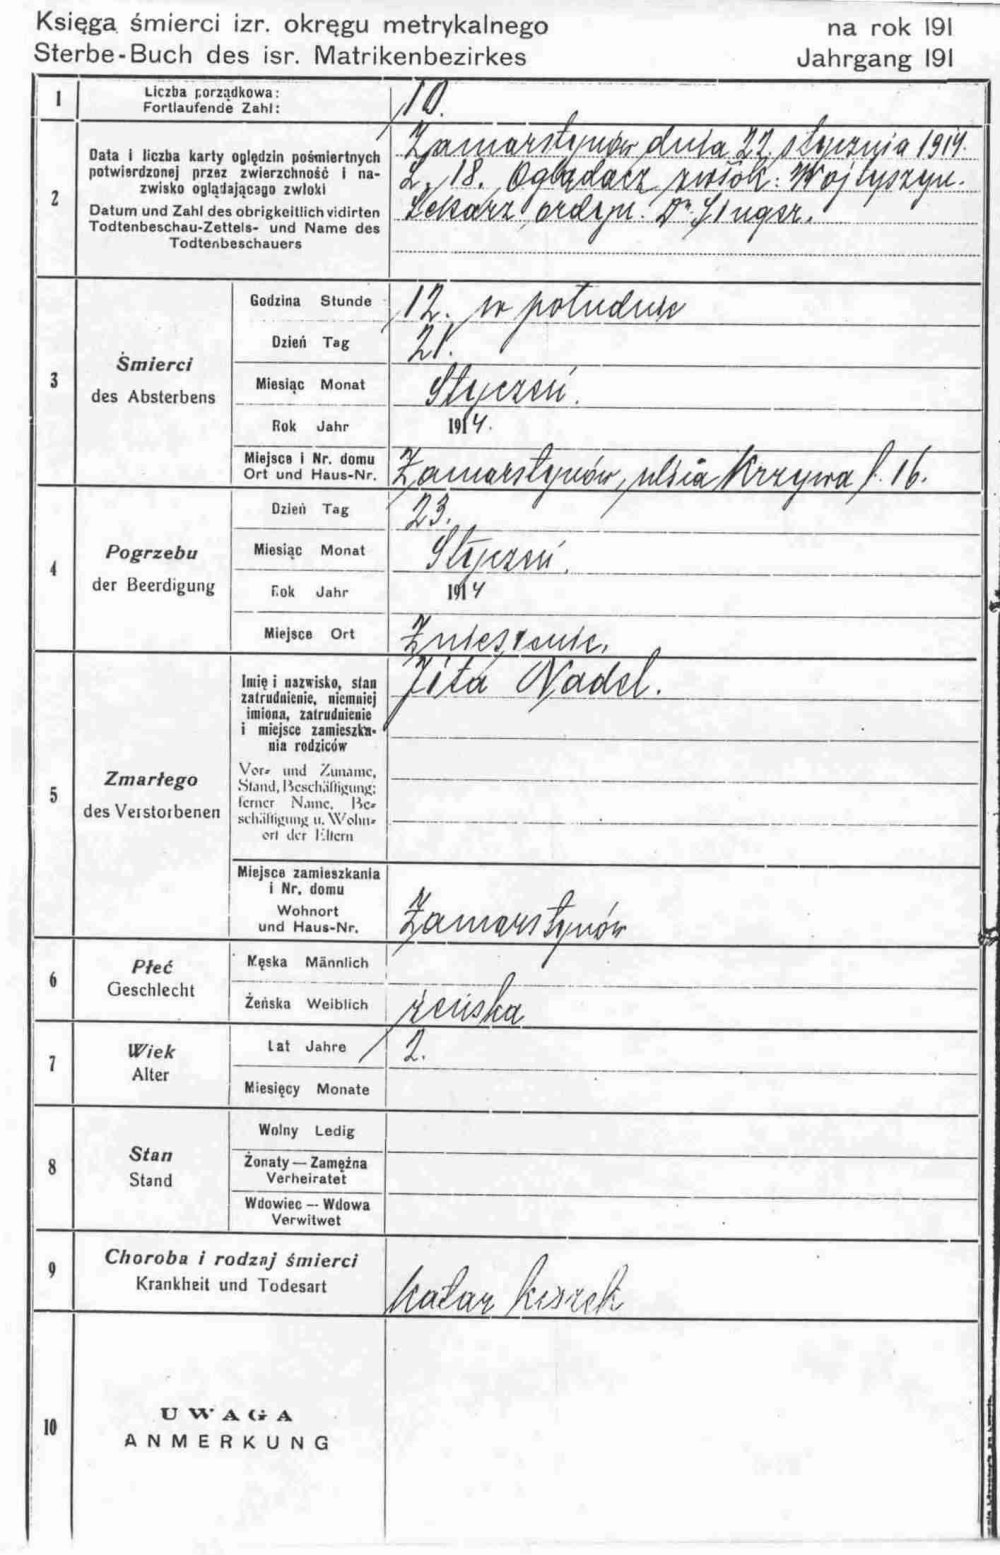 Księga śmierci izr. okręgu metrykalnego na rok 191
Sterbe-Buch des isr. Matrikenbezirkes Jahrgang 191
1
Liczba porządkowa:
Fortlaufende Zahl:
10.
2
Data i liczba karty oględzin pośmiertnych
potwierdzonej przez zwierzchność i na-
zwisko oglądającago zwłoki
Datum und Zahl des obrigkeitlich vidirten
Todtenbeschau-Zettels- und Name des
Todtenbeschauers
Zamarstynów dnia 22. stycznia 1914.
L. 18. Oglądacz zwłok: Wojtyszyn.
Lekarz ordyn. Dr. Singer.
3
Śmierci
des Absterbens
Godzina Stunde
12. w południe
Dzień Tag
21.
Miesiąc Monat
Styczeń.
Rok Jahr
1914.
Miejsce i Nr. domu
Ort und Haus-Nr.
Zamarstynów, ulica Krzywa l. 16.
4
Pogrzebu
der Beerdigung
Dzień Tag
23.
Miesiąc Monat
Styczeń.
Rok Jahr
1914
Miejsce Ort
Zniesienie.
5
Zmarłego
des Verstorbenen
Imię i nazwisko, stan
zatrudnienie, niemniej
imiona, zatrudnienie
i miejsce zamieszka-
nia rodziców
Vor- und Zuname,
Stand, Beschäftigung;
ferner Name, Be-
schäftigung u. Wohn-
ort der Eltern
Jita Nadel.
Miejsce zamieszkania
i Nr. domu
Wohnort
und Haus-Nr.
Zamarstynów
6
Płeć
Geschlecht
Męska Männlich
Żeńska Weiblich
żeńska
7
Wiek
Alter
Lat Jahre
2.
Miesięcy Monate
8
Stan
Stand
Wolny Ledig
Żonaty — Zamężna
Verheiratet
Wdowiec — Wdowa
Verwitwet
9
Choroba i rodzaj śmierci
Krankheit und Todesart
Katar kiszek
10
UWAGA
ANMERKUNG